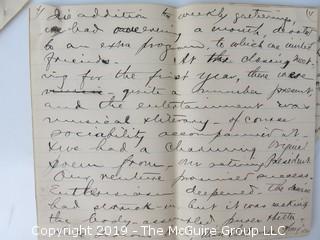 In addition to weekly gatherings,
had one evening a month, devoted
to an extra program, to which we invited
friends. At the closing meet-
ing for the first year, there were
quite a number present
and the entertainment was
musical & literary - of course
sociability accompanied it.
We had a charming original
poem from our retiring President
Our venture promised success.
Enthusiasm deepened. The
had struck in but it was making
the body assembled
Copyright 2019 - TheImageIsMine.com